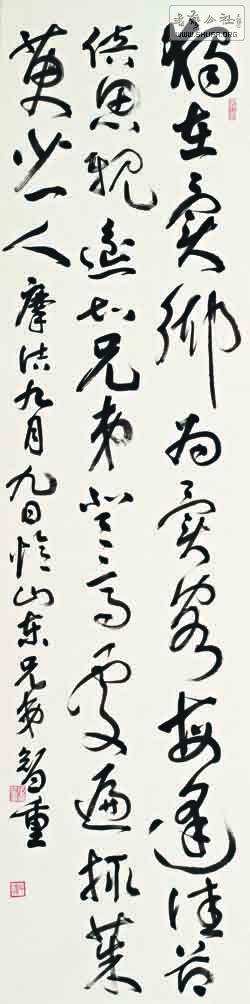 獨在異鄉為異客每逢佳節
倍思親遙知兄弟登高處遍插茱
萸少一人 摩詰九月九日憶山東兄弟 智重
WWW.SHUFA.ORG